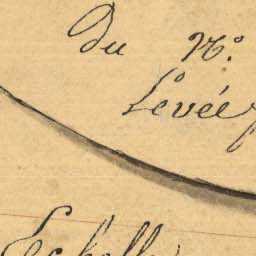 Du N.°
Levée
Echelle